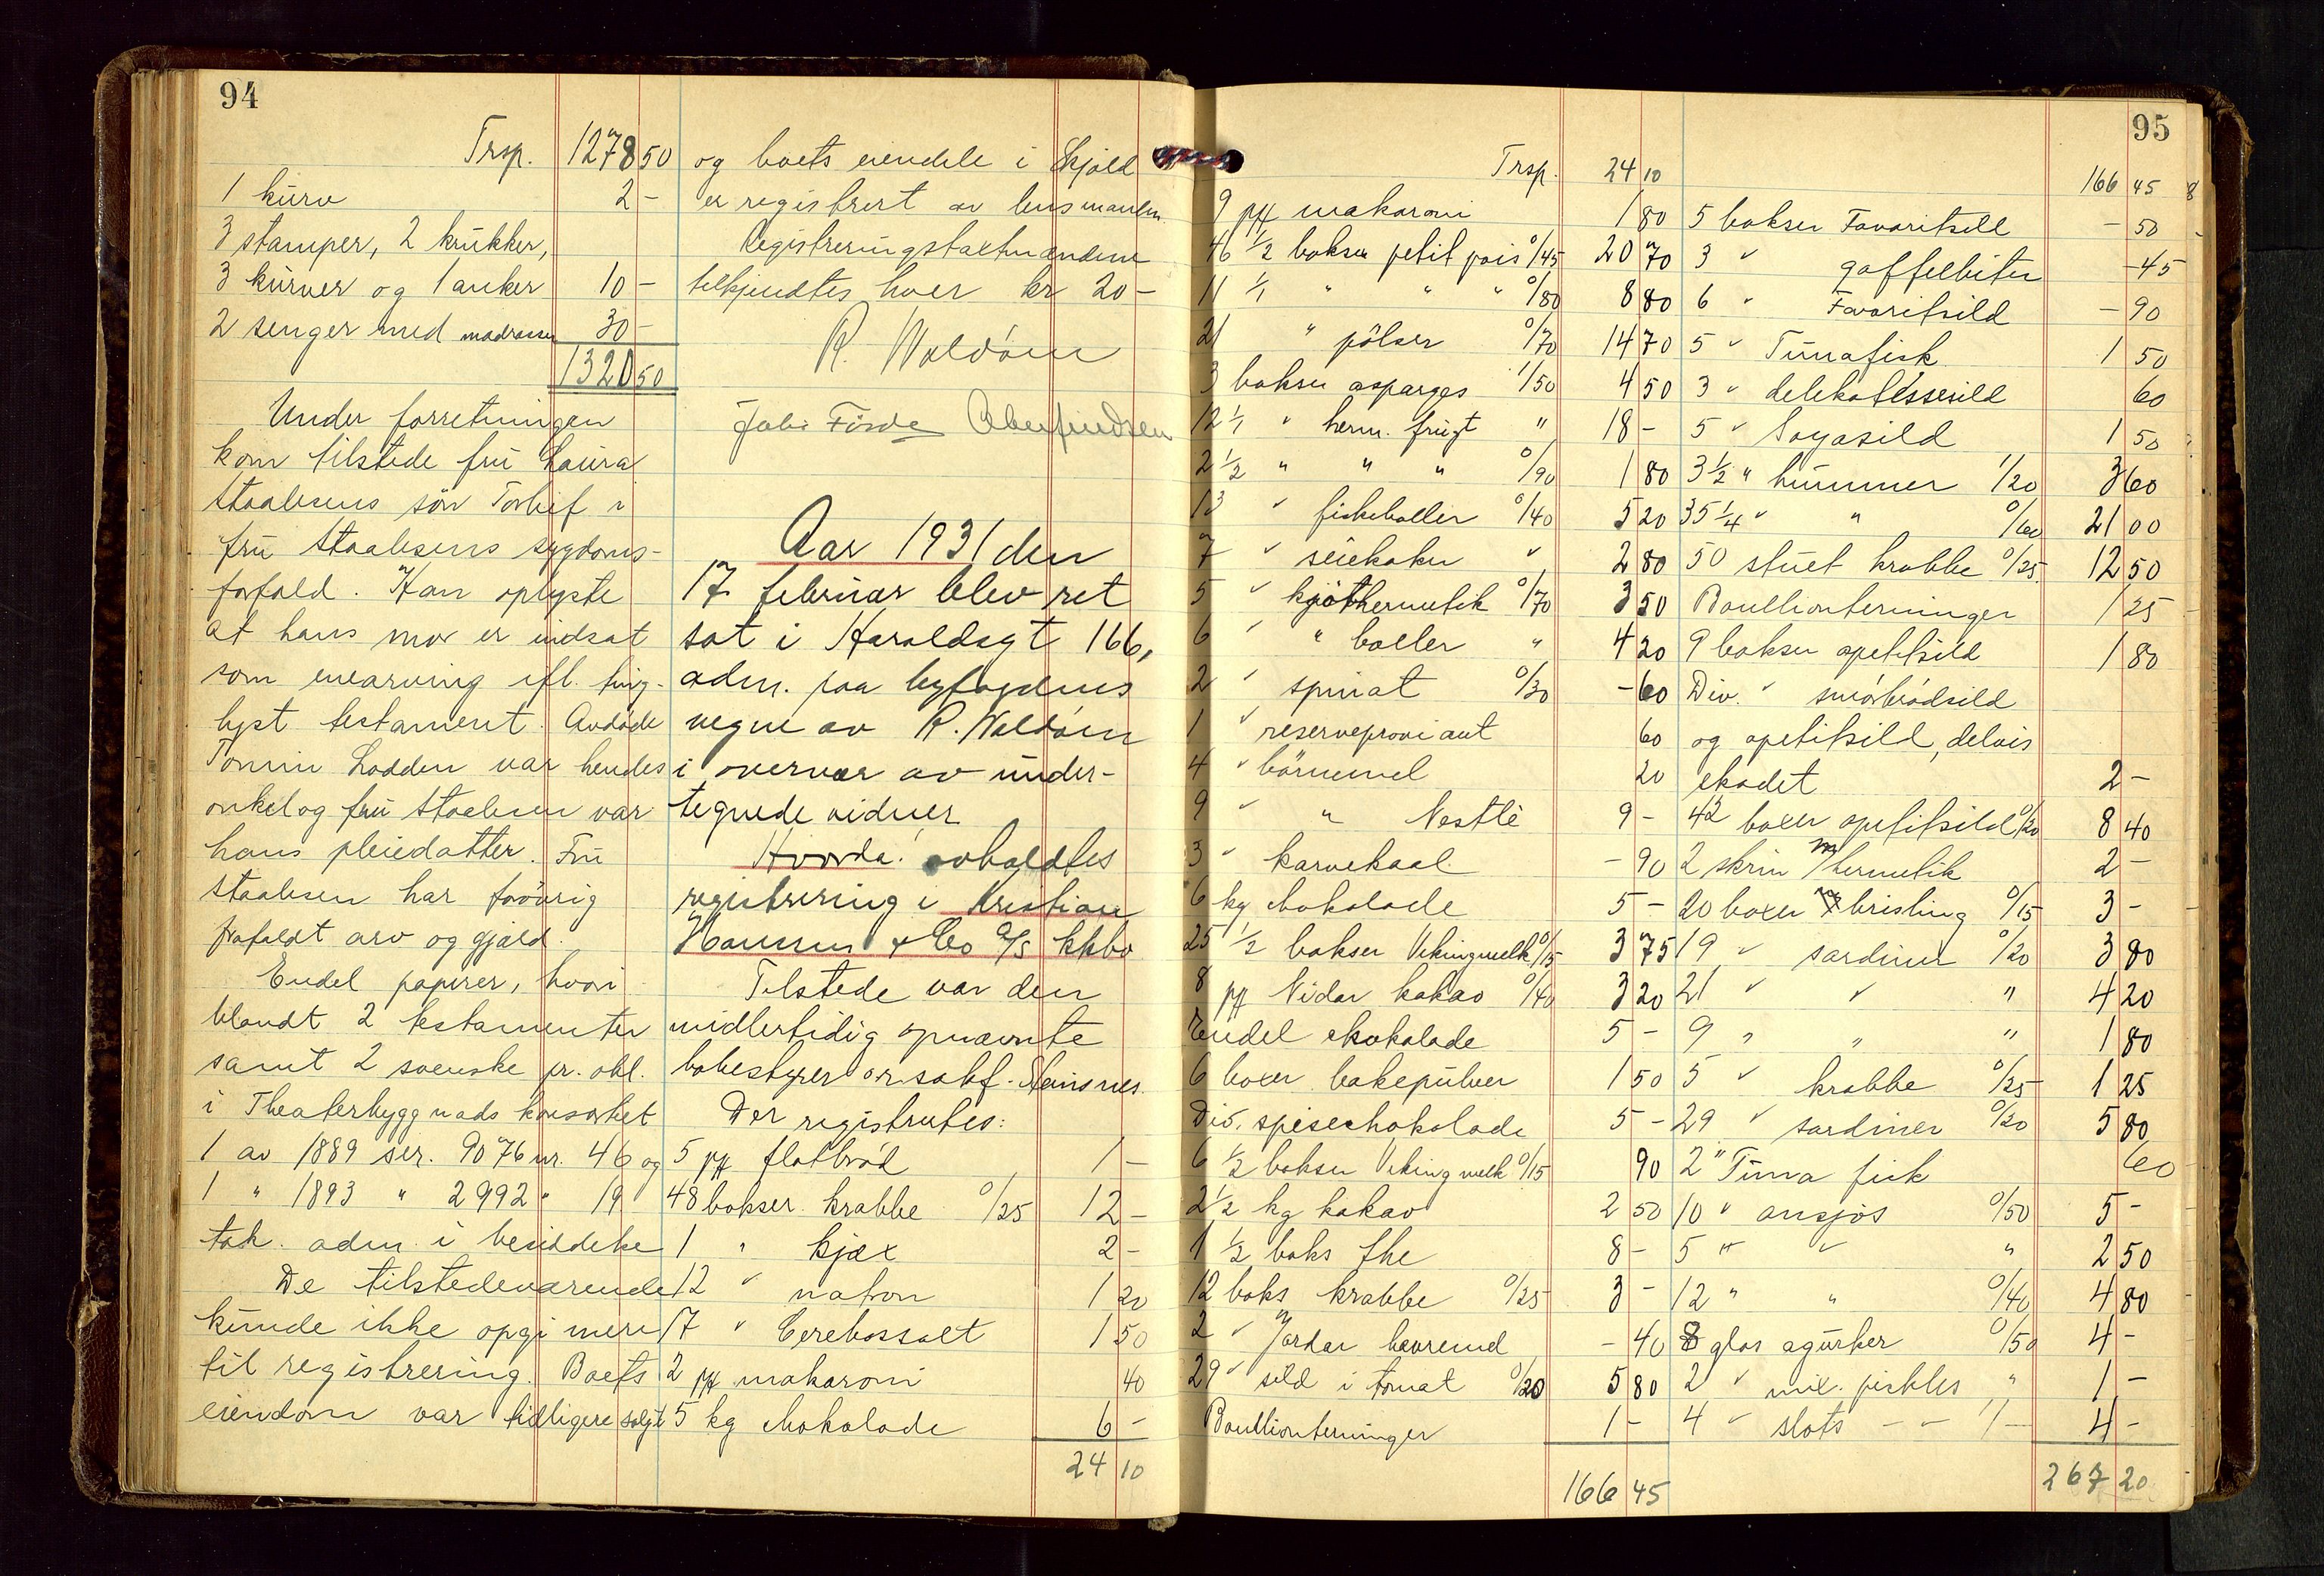 94
Trsp. 1278 50
1 kurv 2 -
3 stamper, 2 krukker,
3 kurver og 1 anker 10 -
2 senger med madrasser 30 -
1320 50
Under forretningen
kom tilstede fru Laura
Staalesens sön Torleif i
fru Staalesens sygdoms-
forfald. Han oplyste
at hans mor er indsat
som enearving ifl. ting-
lyst testament. Avdöde
Tonnin Lodden var hendes
onkel og fru Staalesen var
hans pleiedatter. Fru
Staalesen har forövrig
frafaldt arv og gjæld.
Endel papirer, hvori
blandt 2 testamenter
samt 2 svenske pr. obl.
i Theaterbyggnads konsortiet
1 av 1889 ser. 9076 nr. 46 og
1 " 1893 " 2992 " 19
tok adm. i besiddelse
De tilstedeværende
kunde ikke opgi mere
til registrering. Boets
eiendom var tidligere solgt
og boets eiendele i Skjold
er registrert av lensmanden.
Registreringstakstmændene
tilkjendtes hver kr 20 -
R. Waldóm
Aar 1931 den
17 februar blev ret
sat i Haraldsgt 166,
adm. paa byfogdens
vegne av R. Waldóm
i overvær av under-
tegnede vidner
Hvorda! avholdtes
registrering i Kristian
Hansen & Co A/S kkbo
Tilstede var den
midlertidig opnævnte
bobestyrer o.r.sakf. Steinsnes.
Der registrertes:
5 pk flatbröd 1 -
48 bokser krabbe 0/25 12 -
1 " kjæx 2 -
12 " natron 1 20
17 " Cerebossalt 1 50
2 pk makaroni 40
5 kg chokolade 6 -
24 10
95
Trsp. 24 10
9 pk makaroni 1 80
46 1/2 bokser petit pois 0/45 20 70
11 1/1 " " " 0/80 8 80
21 " pölser 0/70 14 70
3 bokser asparges 1/50 4 50
12 1/1 " herm. frugt " 18 -
2 1/2 " " " 0/90 1 80
13 " fiskeboller 0/40 5 20
7 " seiekaker " 2 80
5 " kjöthermetik 0/70 3 50
6 " " boller " 4 20
2 " spinat 0/30 - 60
1 " reserveproviant 60
4 " börnemel 20
9 " " Nestlè 9 -
3 " karvekaal - 90
6 kg chokolade 5 -
25 1/2 bokser Vikingmelk 0/15 3 75
8 pk Nidar kakao 0/40 3 20
Endel chokolade 5 -
6 boxer bakepulver 1 50
Div. spisechokolade 5 -
6 1/2 bokser Viking melk 0/15 90
2 1/2 kg kakao 2 50
1 1/2 boks the 8 -
12 boks krabbe 0/25 3 -
2 " Jordar havremel - 40
29 " sild i tomat 0/20 5 80
Boullionterninger 1 -
166 45
166 45
5 bokser Favoritsild - 50
3 " gaffelbiter - 45
6 " Favoritsild - 90
5 " Tunafisk 1 50
3 " delekatessesild 60
5 " Soyasild 1 50
3 1/2 " hummer 1/20 3 60
35 1/4 " " 0/60 21 00
50 stuet krabbe 0/25 12 50
Boullionterninger 1 25
9 bokser apetitsild 1 80
Div. " smörbrödsild
og apetitsild, delvis
skadet 2 -
42 boxer apetitsild 0/20 8 40
2 skrin m/hermetik 2 -
20 boxer brisling 0/15 3 -
19 " sardiner 0/20 3 80
21 " " " 4 20
9 " " " 1 80
5 " krabbe 0/25 1 25
29 " sardiner 0/20 5 80
2 " Tuna fisk 60
10 " ansjos 0/50 5 -
5 " " " 2 50
12 " " 0/40 4 80
8 glas agurker 0/50 4 -
2 " mix. pickles " 1 -
4 " slots - - 1/- 4 -
267 20